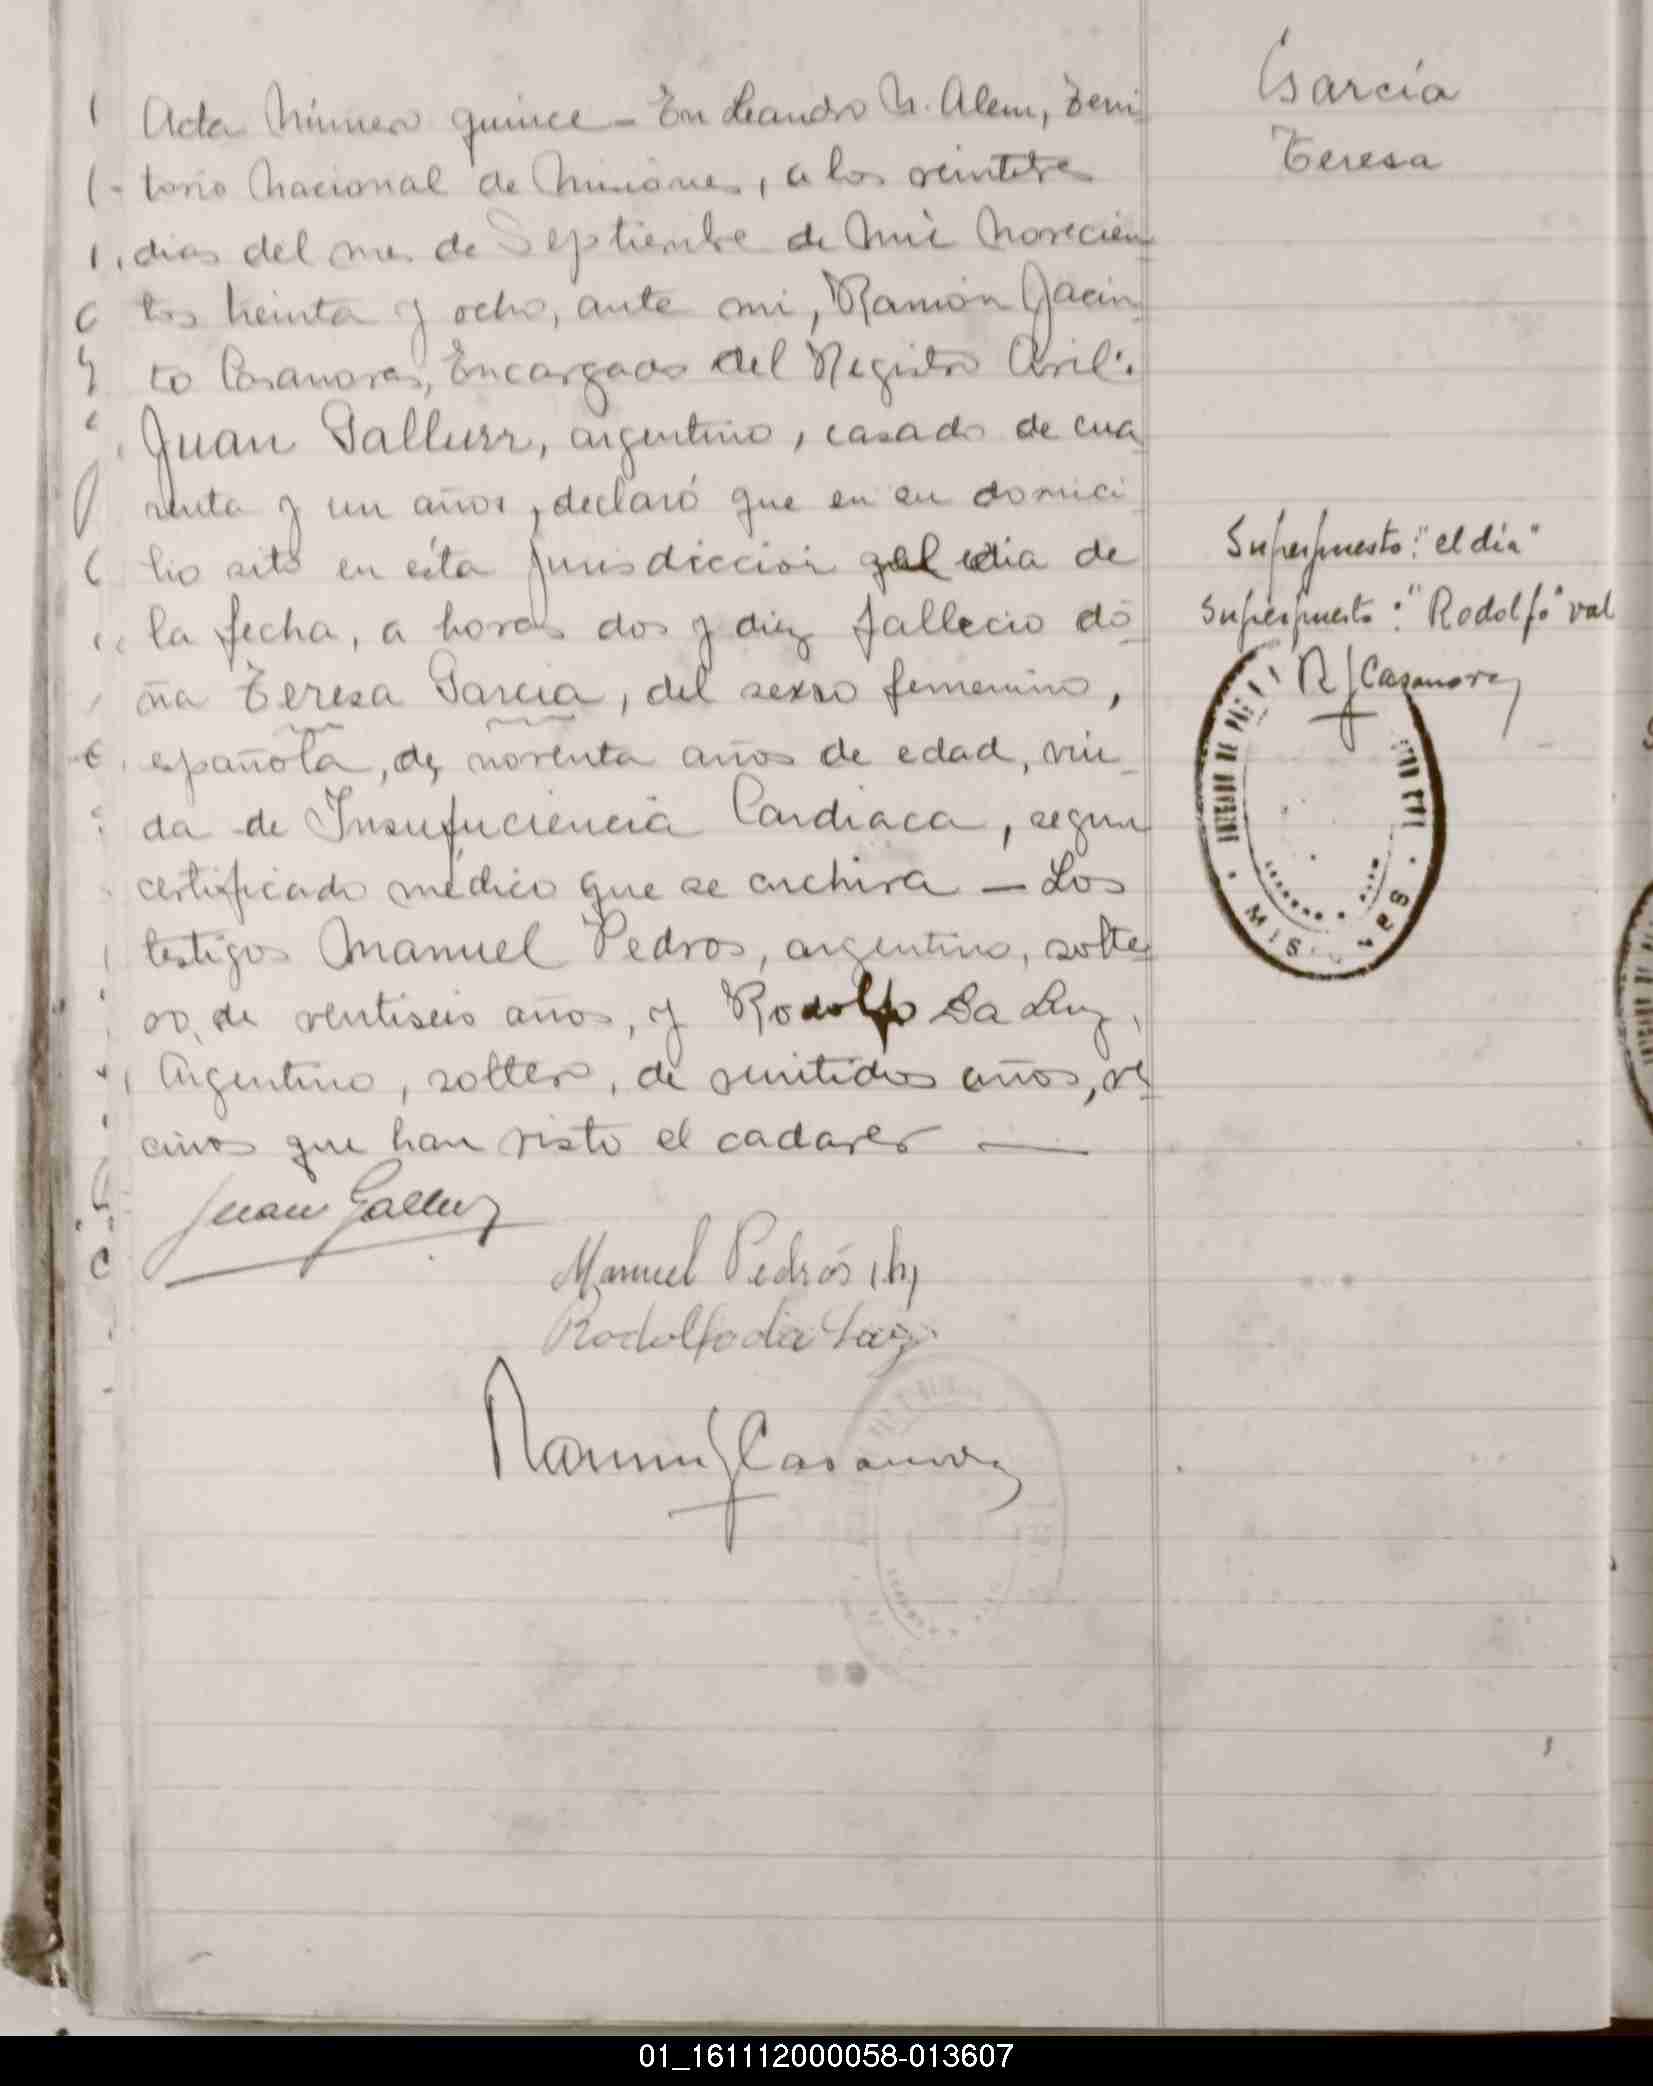 García
Teresa
Acta Número quince - En Leandro N. Alem, Terri
torio Nacional de Misiones, a los veintitres
dias del mes de Septiembre de Mil Novecien
tos treinta y ocho, ante mi, Ramón Jacin
to Casanovas, Encargado del Registro Civil:
Juan Gallurr, argentino, casado de cua
renta y un años, declaró que en su domici
lio sito en ésta jurisdiccion el dia de
la fecha, a horas dos y diez fallecio do
ña Teresa Garcia, del sexso femenino,
española, de noventa años de edad, viu
da de Insufuciencia Cardiaca, segun
certificado médico que se archiva - Los
testigos Manuel Pedros, argentino, solte
ro, de ventiseis años, y Rodolfo Da Luz,
Argentino, soltero, de venitidos años, ve
cinos que han visto el cadaver
Superpuesto: "el dia"
Superpuesto: "Rodolfo" val
R J Casanovas
MISIONES
Juan Galluz
Manuel Pedrós (h)
Rodolfo da Luz
Ramon J Casanovas
01_161112000058-013607